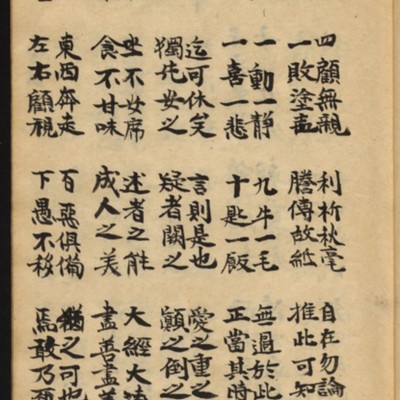 四顧無親 利析秋毫 自在勿論
一敗塗盡 謄傳故紙 推此可知
一動一靜 九牛一毛 無過於此
一喜一悲 十匙一飯 正當其時
迄可休矣 言則是也 愛之重之
獨 安之 疑者闕之 顚之倒之
坐不安席 述者之能 大經大
食不甘味 成人之美 盡善盡
東西奔走 百惡俱備 猶之可也
左右顧視 下愚不移 焉敢乃